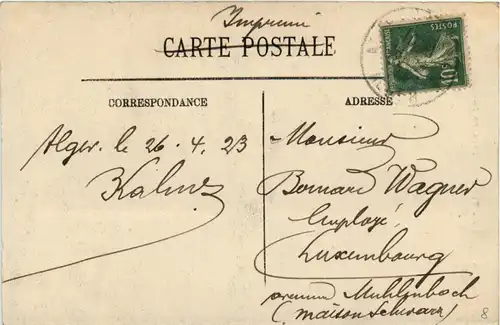 Imprimé
CARTE POSTALE
POSTES
10c
CORRESPONDANCE
ADRESSE
Alger. le 26. 4. 23
Monsieur
Bernard Wagner
Employé,
Luxembourg
avenue Muhlenbach
(maison Schwarz)
8